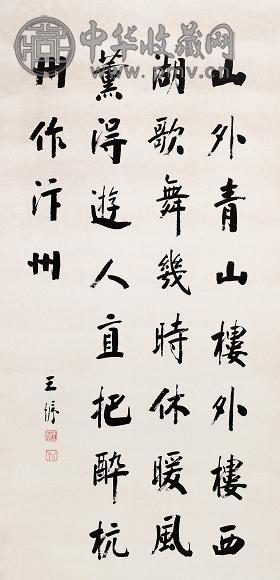 山外青山樓外樓西
湖歌舞幾時休暖風
薰得遊人直把醉杭
州作汴州
王
中华收藏网